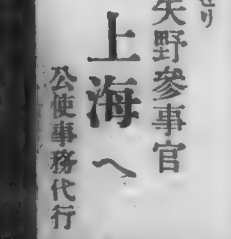 せり
矢野參事官
上海へ
公使事務代行